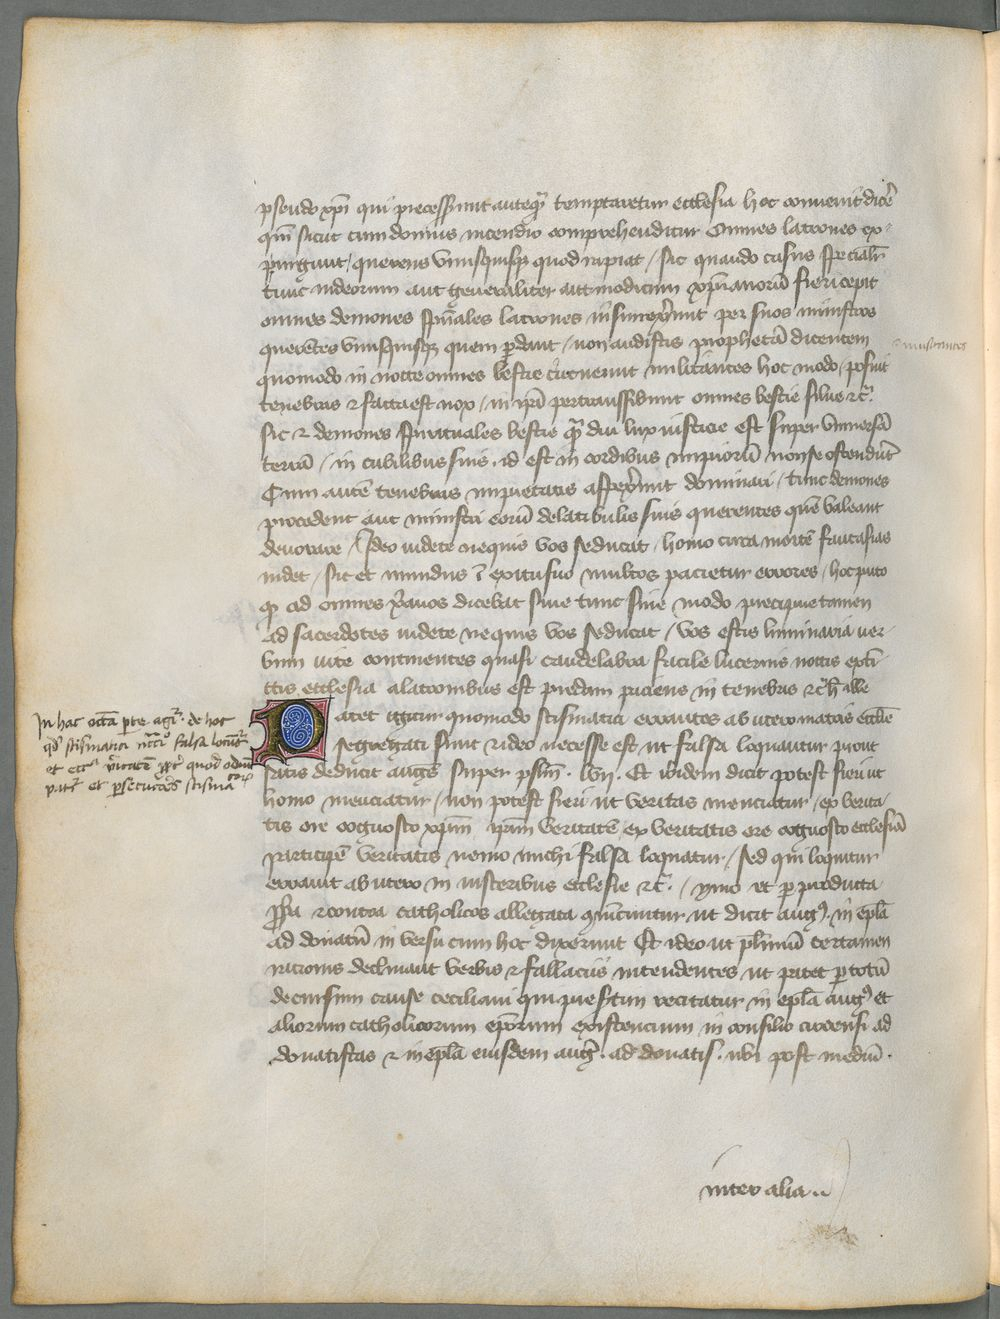 pseudo xpi qui precesserunt anteq̃ temptaretur ecclesia hoc convenit dicẽ
qm̃ sicut cum domus incendio comprehenditur Omnes latrones ex-
purgunt / querens unusquisq quod rapiat / sic quando casus spcialr̃
tunc iudeorum aut generaliter aut modicum xp̃ianorũ fieri cepit
omnes demones spũales latrones insurrexerunt per suos ministros
querẽtes unusquisq quem p̃dant / non audistis prophetã dicentem
quomodo in nocte omnes bestie circueunt militantes hoc modo / posuit
tenebras ⁊ facta est nox / in ip̃a pertranssibunt omnes bestie silue ⁊c̃.
sic ⁊ demones spirituales bestie q̃ diu lux iusticie est super universã
terrã / in cubilibus suis . id est in cordibus impiorũ non se ostendũt
Cum autẽ tenebras impietatis aspexerint dominari / tunc demones
procedent aut ministri eorũ de latibulis suis querentes quẽ valeant
devorare / Ideo videte nequis vos seducat / homo circa mortẽ fantasias
videt / sic et mundus ĩ exitu suo multos pacietur errores / hoc puto
q̃ ad omnes xp̃ianos dicebat sive tunc sive modo precipue tamen
ad sacerdotes videte nequis vos seducat / vos estis luminaria ver-
bum vite continentes quasi candelabra facile lucernis noctis exti-
ctis ecclesia a latronibus est predam paciens in tenebris ⁊c̃ h̃ ille
Patet igitur quomodo scismatici errantes ab utero matris ecclẽe
segregati sunt ⁊ ideo necesse est ut falsa loquantur prout
satis deducit augũs super psl̃m . lvii . Et ibidem dicit potest fieri ut
homo menciatur / non potest fieri ut veritas menciatur / ex verita-
tis ore cognosco xp̃m ip̃am veritatẽ ex veritatis ore cognosco ecclesiã
participẽ veritatis nemo michi falsa loquatur / sed qui loquitur
erravit ab utero in visceribus ecclesie ⁊c̃ . / ymo et p producta
⁊ contra catholicos allegata ut dicit aug9 . in epl̃a
ad donatũ in versu cum hoc dixerunt Et ideo ut pl̃imũ certamen
racionis declinant verbis ⁊ fallaciis intendentes ut patet p totũ
decursum cause ceciliani qui presertim recitatur in epl̃a aug9 et
aliorum catholicorum ep̃orum existencium in consilio circensi ad
donatistas ⁊ in epl̃a eiusdem aug9 . ad donatis . ubi post mediũ .
inter alia ..
In hac octa p̃te agit̃ . de hoc
qđ scismatici falsa locunt̃
et ecce veritatẽ quod odiũt